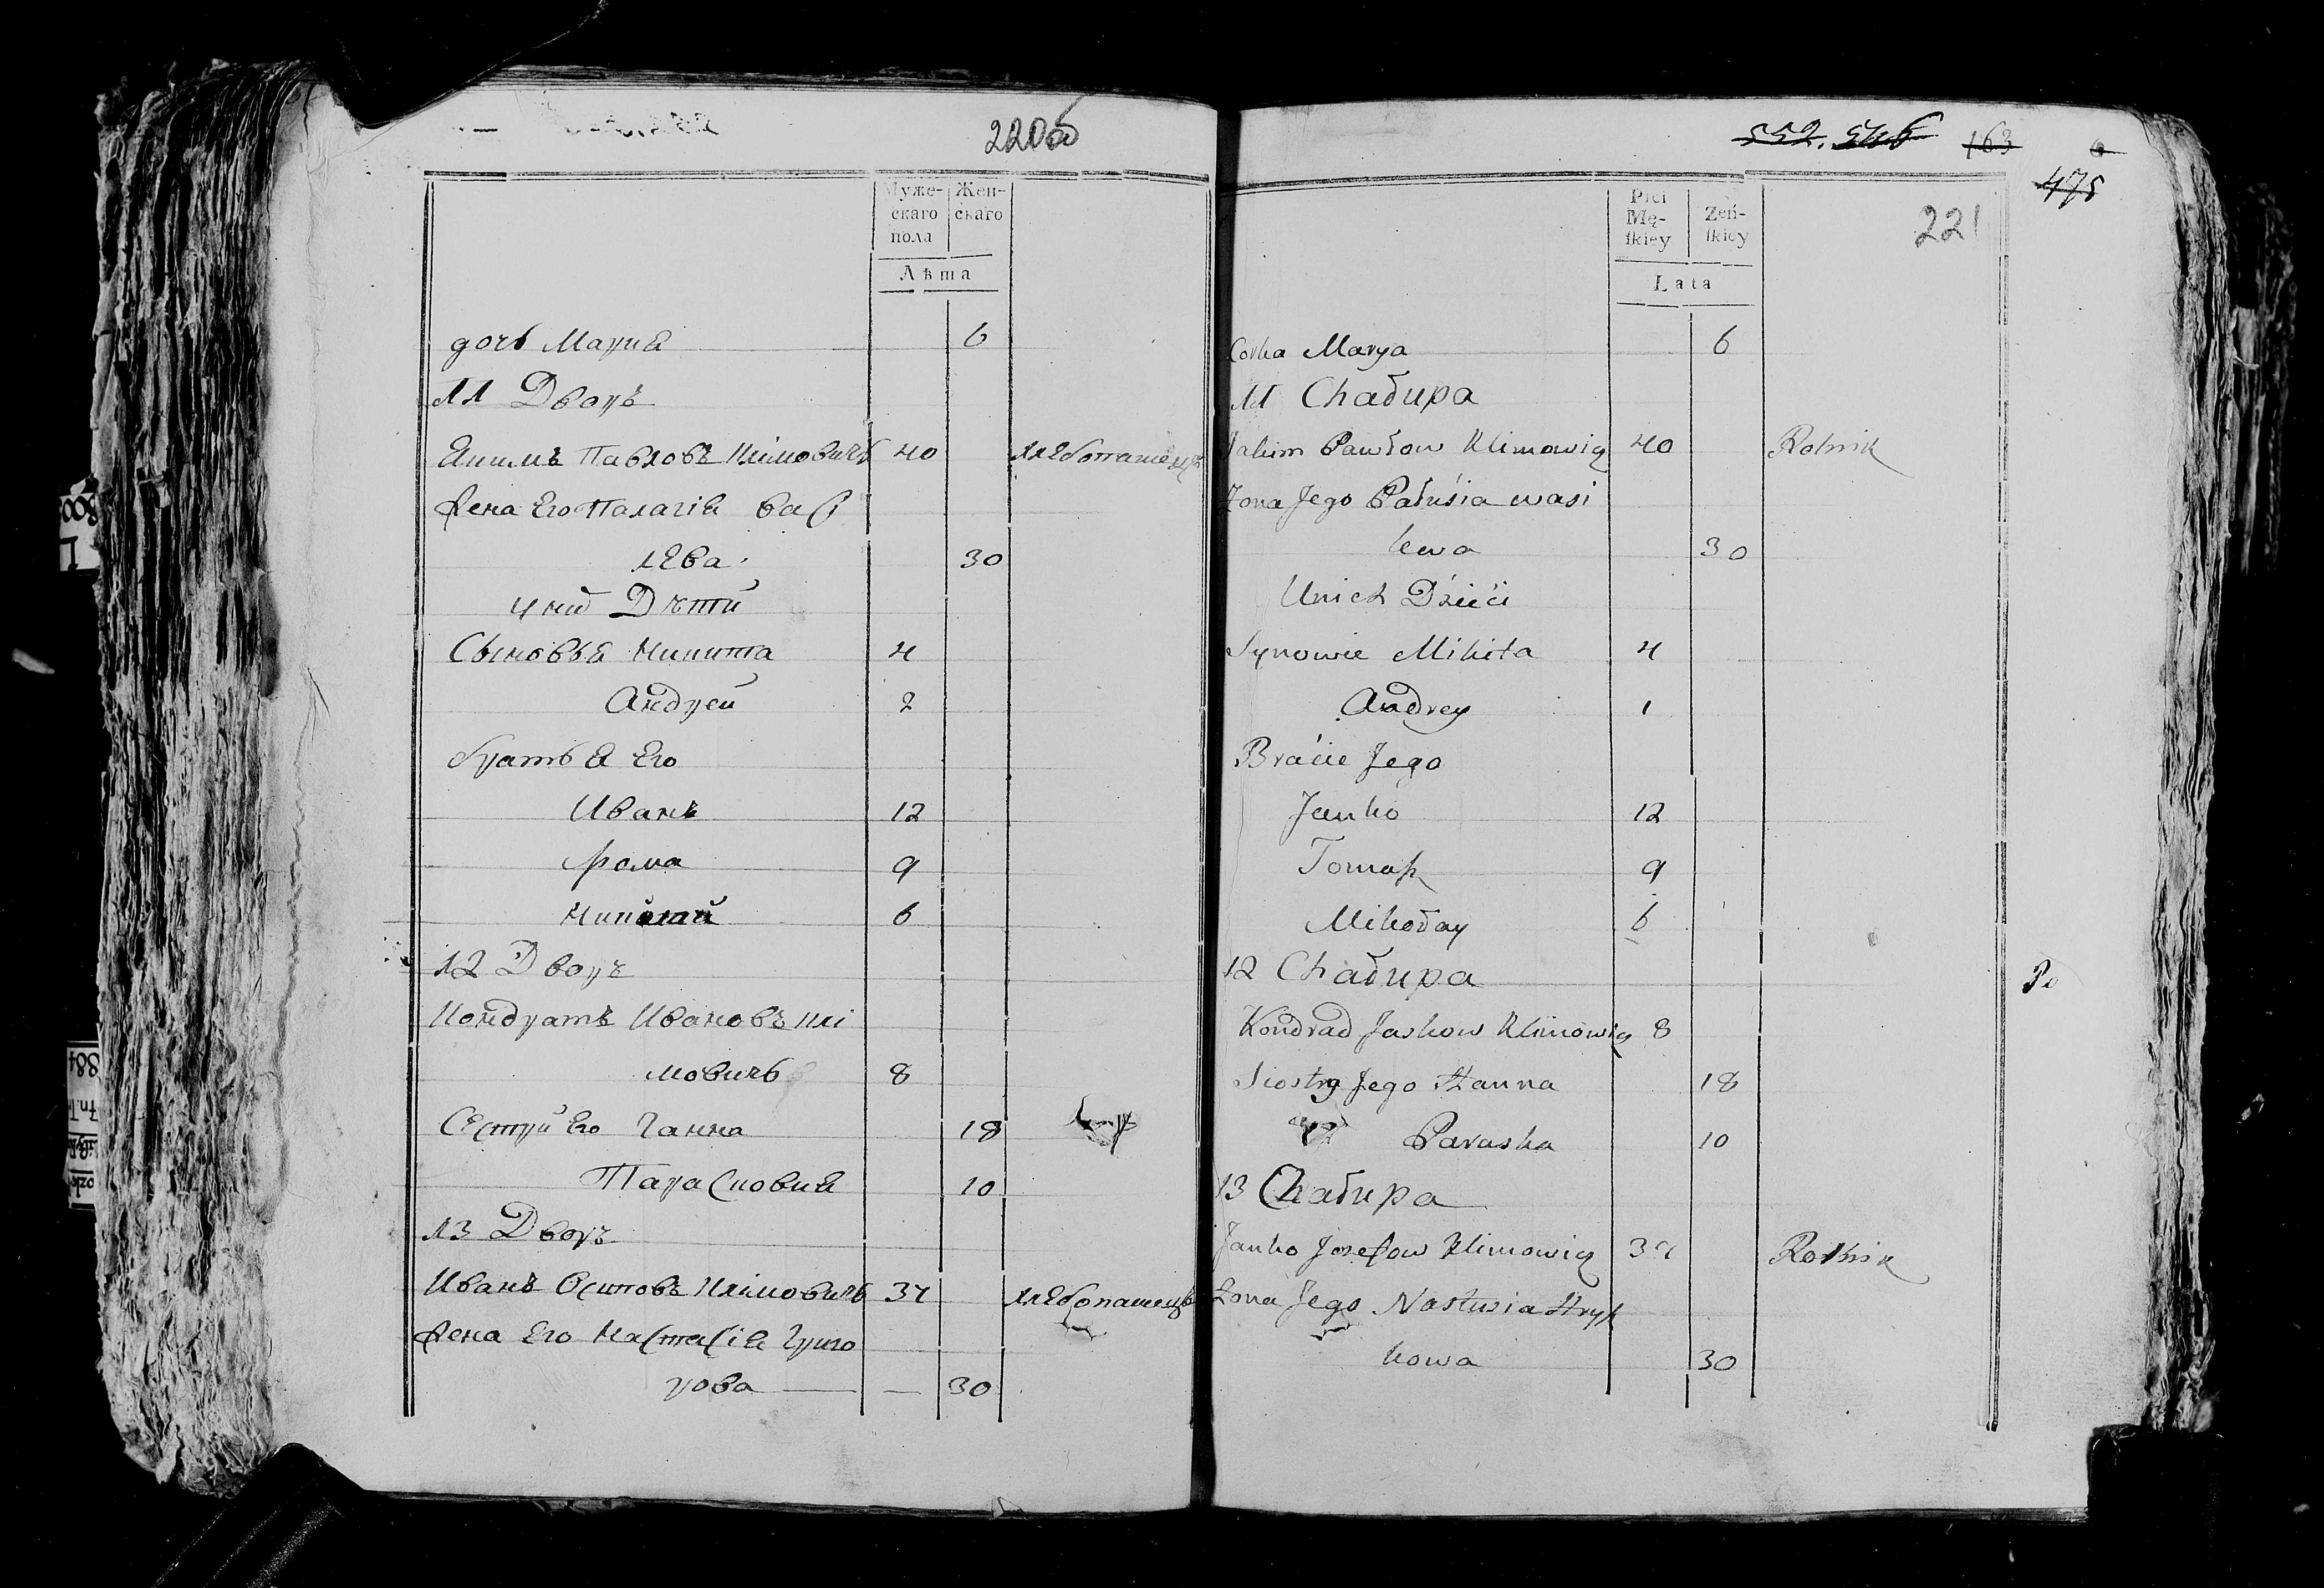 220об
Муже-
скаго
пола
Жен-
скаго
Лѣта
дочь Марія 6
11 Дворъ
Якимъ Павловъ Климовичь 40 хлебопашецъ
Жена Его Палагія Васи
лева 30
у нихъ Дѣти
Сыновья Никита 4
Андрей 2
братья Его
Иванъ 12
Фома 9
Николай 6
12 Дворъ
Кондратъ Ивановъ Клі
мовичь 8
Сестры Его Ганна 18
Парасковия 10
13 Дворъ
Иванъ Осиповъ Клімовичь 37 хлебопашецъ
Жена Его Настасія Григо
рова — — 30
552. 546 163 6
475
221
Płci
Mę-
ſkiey
Żeń-
ſkiey
Lata
Corka Marya 6
11 Chałupa
Jakim Pawłow Klimowicz 40 Rolnik
Żona Jego Pałusia wasi
lewa 30
Unich Dzieci
Synowie Mikita 4
Andrey 1
Bracie Jego
Janko 12
Tomaſz 9
Mikołay 6
12 Chałupa
Kondrad Jaskow Klimowicz 8
Siostry Jego Hanna 18
Paraska 10
13 Chałupa
Janko Jozefow Klimowicz 37 Rolnik
Żona Jego Nastusia Hryſz
kowa 30